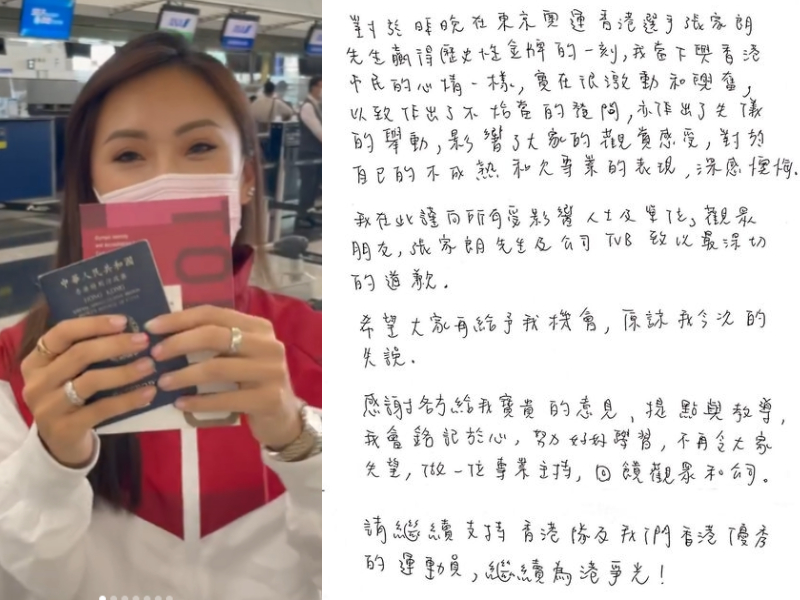 中華人民共和國
HONG KONG
TO
對於昨晚在東京奧運香港選手張家朗
先生贏得歷史性金牌的一刻,我當下與香港
市民的心情一樣,實在很激動和興奮,
以致作出了不恰當的發問,亦作出了失儀
的舉動,影響了大家的觀賞感受,對於
自己的不成熟和欠專業的表現,深感懊悔.
我在此謹向所有受影響人士及單位,觀眾
朋友,張家朗先生及公司 TVB 致以最深切
的道歉.
希望大家再給予我機會,原諒我今次的
失誤.
感謝各方給我寶貴的意見、提點與教導,
我會銘記於心,努力好好學習,不再令大家
失望,做一位專業主持,回饋觀眾和公司。
請繼續支持香港隊及我們香港優秀
的運動員,繼續為港爭光!